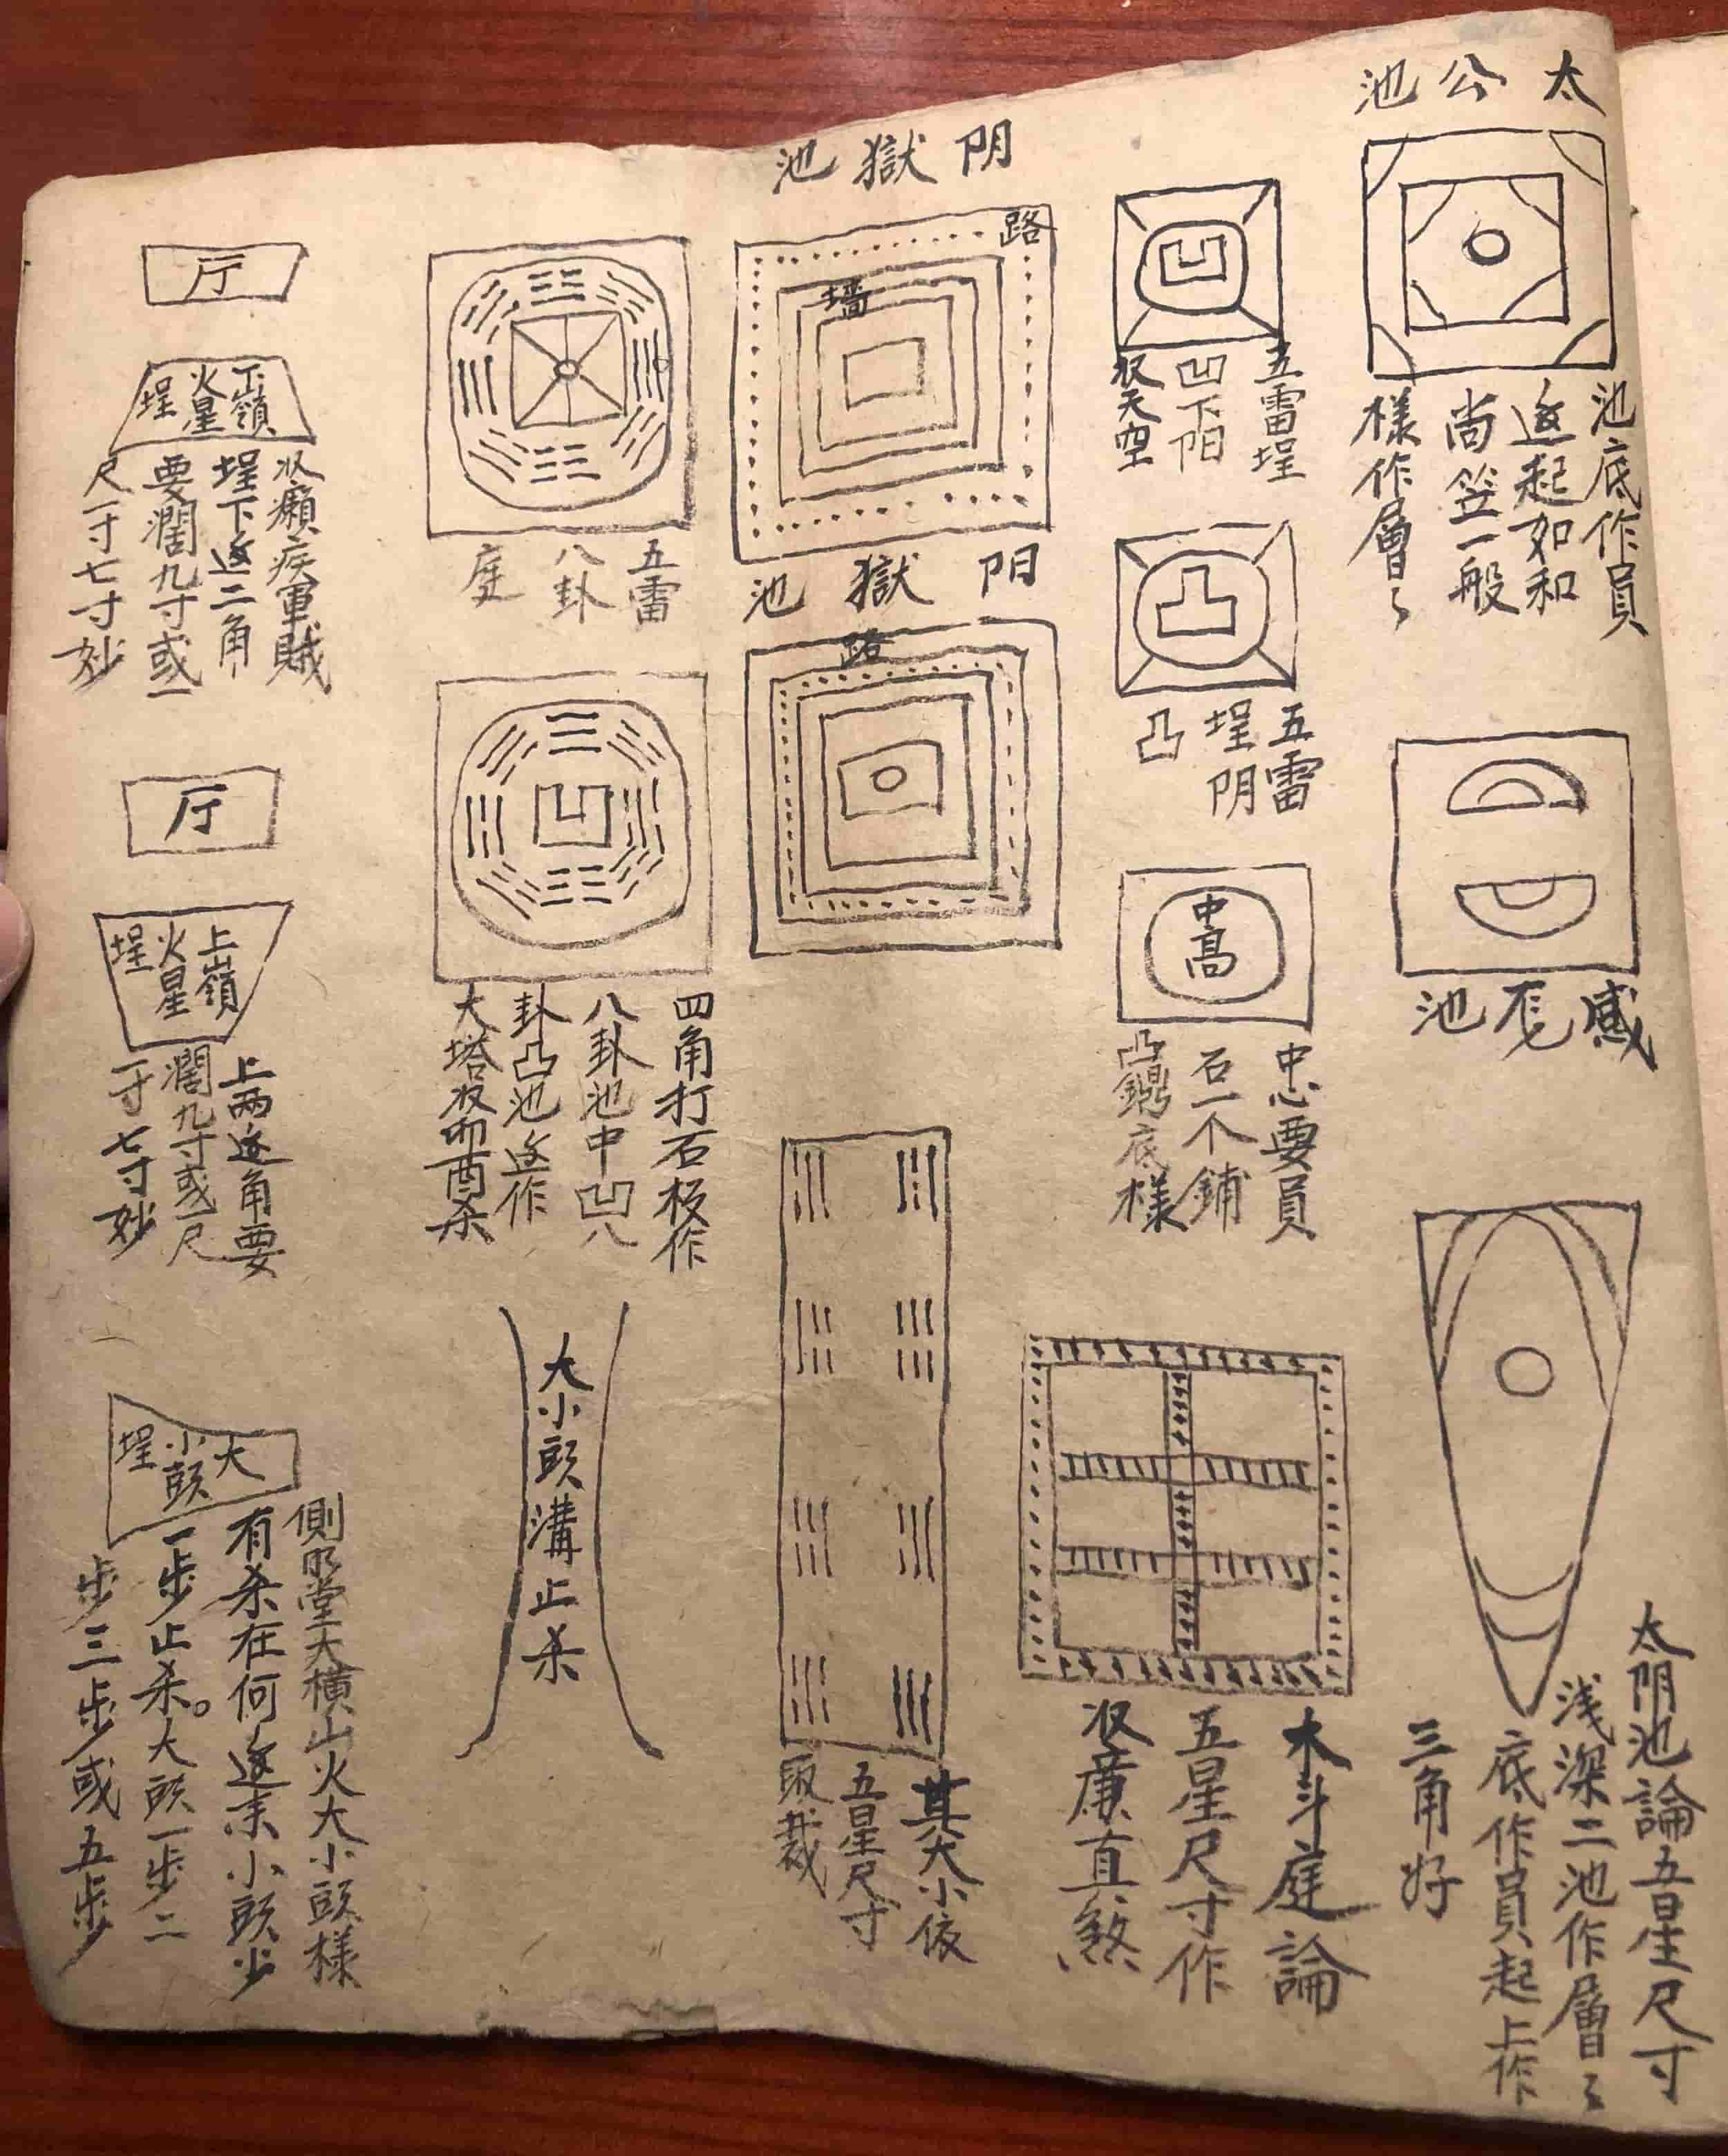 太公池
池底作員
返起如和
尚笠一般
樣作層々
感死池
太阴池論五星尺寸
浅深二池作層々
底作員起上作
三角好
五雷埕
凹下阳
收天空
五雷
埕阴
凸
中高
中心要員
石一个鋪
凸鍋底樣
木斗庭論
五星尺寸作
收廉直煞
阴獄池
路
墙
阴獄池
路
其大小依
五星尺寸
取裁
五雷
八卦
庭
四角打石板作
八卦池中凹八
卦凸池返作
大塔收卯酉杀
大小頭溝止杀
厅
下嶺
火星
埕
收癩疾軍賊
埕下返二角
要濶九寸或一
尺一寸七寸妙
厅
上嶺
火星
埕
上两返角要
濶九寸或一尺
一寸七寸妙
大
小頭
埕
側明堂天橫山火大小頭樣
有杀在何返来小頭步
一步止杀。大頭一步二
步三步或五步